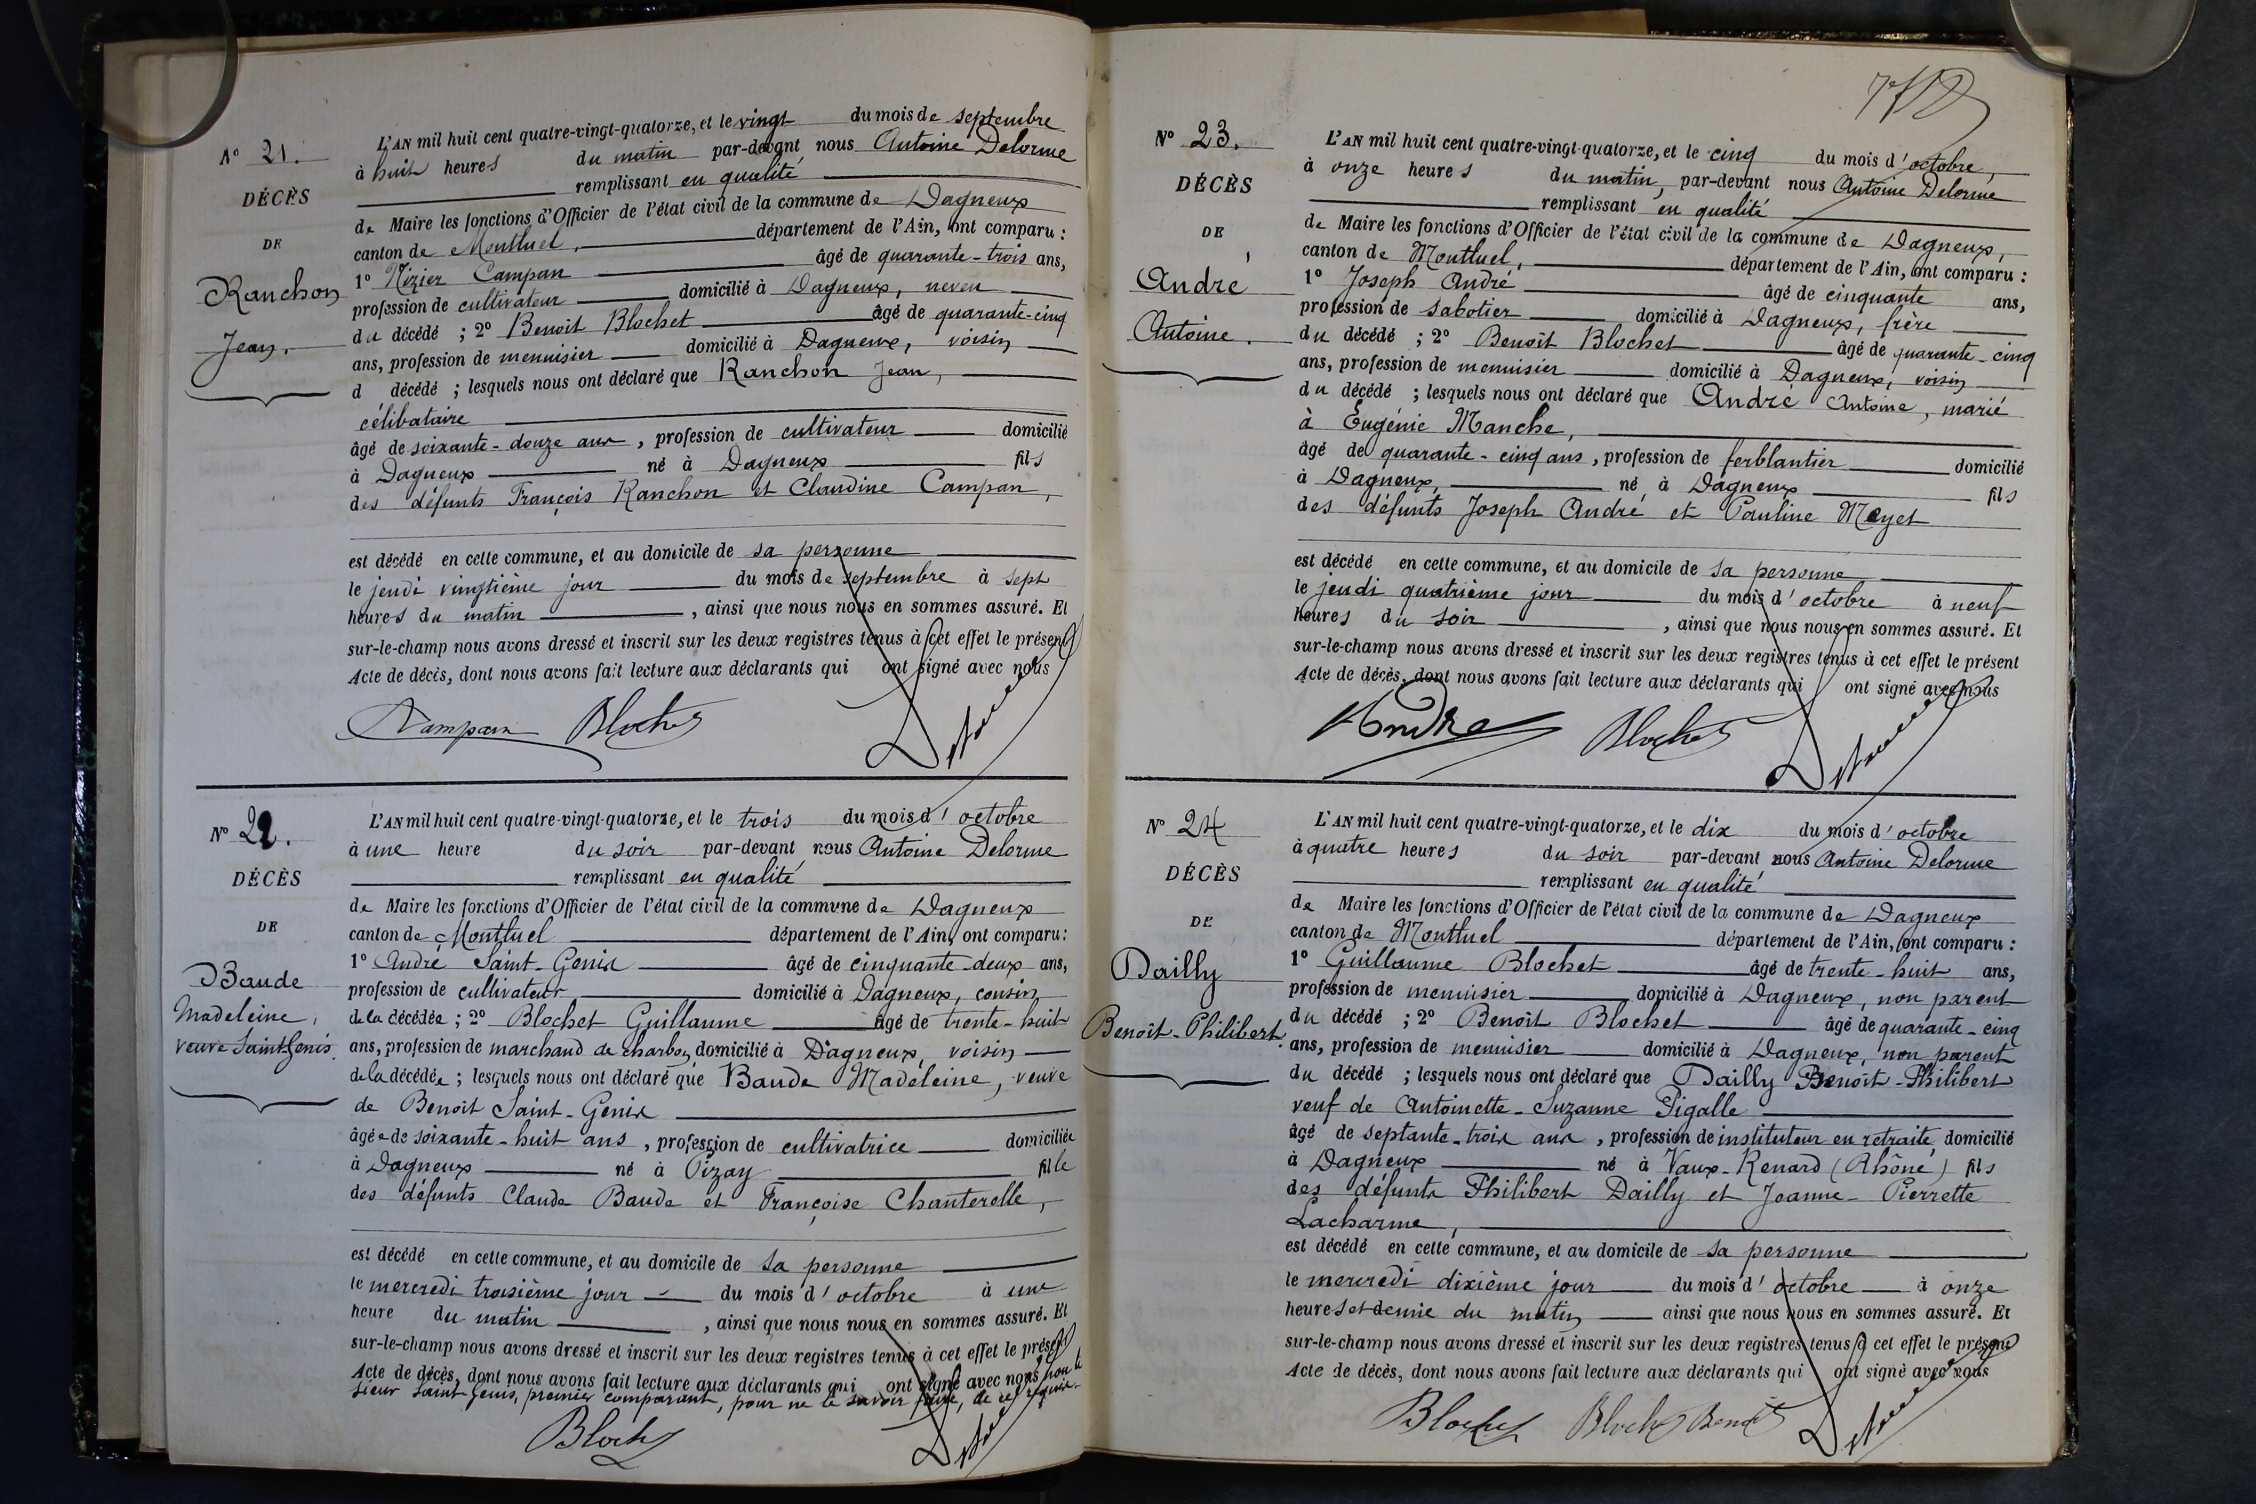 N° 21.
DÉCÈS
DE
Ranchon
Jean.
L'AN mil huit cent quatre-vingt-quatorze, et le vingt du mois de septembre
à huit heures du matin par-devant nous Antoine Delorme
remplissant en qualité
de Maire les fonctions d'Officier de l'état civil de la commune de Dagneux
canton de Montluel, département de l'Ain, ont comparu :
1° Nizier Campan âgé de quarante-trois ans,
profession de cultivateur domicilié à Dagneux, neveu
du décédé ; 2° Benoît Blochet âgé de quarante-cinq
ans, profession de menuisier domicilié à Dagneux, voisin
d décédé ; lesquels nous ont déclaré que Ranchon Jean,
célibataire
âgé de soixante-douze ans, profession de cultivateur domicilié
à Dagneux né à Dagneux fils
des défunts François Ranchon et Claudine Campan,
est décédé en cette commune, et au domicile de sa personne
le jeudi vingtième jour du mois de septembre à sept
heures du matin, ainsi que nous nous en sommes assuré. Et
sur-le-champ nous avons dressé et inscrit sur les deux registres tenus à cet effet le présent
Acte de décès, dont nous avons fait lecture aux déclarants qui ont signé avec nous
Campan Blochet Delorme
N° 22.
DÉCÈS
DE
Baude
Madeleine,
veuve Saint-Genis.
L'AN mil huit cent quatre-vingt-quatorze, et le trois du mois d'octobre
à une heure du soir par-devant nous Antoine Delorme
remplissant en qualité
de Maire les fonctions d'Officier de l'état civil de la commune de Dagneux
canton de Montluel département de l'Ain, ont comparu :
1° André Saint-Genis âgé de cinquante-deux ans,
profession de cultivateur domicilié à Dagneux, cousin
de la décédée ; 2° Blochet Guillaume âgé de trente-huit
ans, profession de marchand de charbon domicilié à Dagneux, voisin
de la décédée ; lesquels nous ont déclaré que Baude Madeleine, veuve
de Benoît Saint-Genis
âgée de soixante-huit ans, profession de cultivatrice domiciliée
à Dagneux né à Pizay fille
des défunts Claude Baude et Françoise Chanterelle,
est décédé en cette commune, et au domicile de sa personne
le mercredi troisième jour du mois d'octobre à une
heure du matin, ainsi que nous nous en sommes assuré. Et
sur-le-champ nous avons dressé et inscrit sur les deux registres tenus à cet effet le présent
Acte de décès, dont nous avons fait lecture aux déclarants qui ont signé avec nous non le
sieur Saint-Genis, premier comparant, pour ne le savoir faire, de ce requis.
Blochet Delorme
N° 23.
DÉCÈS
DE
André
Antoine.
L'AN mil huit cent quatre-vingt-quatorze, et le cinq du mois d'octobre,
à onze heures du matin, par-devant nous Antoine Delorme
remplissant en qualité
de Maire les fonctions d'Officier de l'état civil de la commune de Dagneux,
canton de Montluel, département de l'Ain, ont comparu :
1° Joseph André âgé de cinquante ans,
profession de sabotier domicilié à Dagneux, frère
du décédé ; 2° Benoît Blochet âgé de quarante-cinq
ans, profession de menuisier domicilié à Dagneux, voisin
du décédé ; lesquels nous ont déclaré que André Antoine, marié
à Eugénie Manche,
âgé de quarante-cinq ans, profession de ferblantier domicilié
à Dagneux, né à Dagneux fils
des défunts Joseph André et Pauline Meyet
est décédé en cette commune, et au domicile de sa personne
le jeudi quatrième jour du mois d'octobre à neuf
heures du soir, ainsi que nous nous en sommes assuré. Et
sur-le-champ nous avons dressé et inscrit sur les deux registres tenus à cet effet le présent
Acte de décès, dont nous avons fait lecture aux déclarants qui ont signé avec nous
André Blochet Delorme
N° 24
DÉCÈS
DE
Dailly
Benoît-Philibert.
L'AN mil huit cent quatre-vingt-quatorze, et le dix du mois d'octobre
à quatre heures du soir par-devant nous Antoine Delorme
remplissant en qualité
de Maire les fonctions d'Officier de l'état civil de la commune de Dagneux
canton de Montluel département de l'Ain, ont comparu :
1° Guillaume Blochet âgé de trente-huit ans,
profession de menuisier domicilié à Dagneux, non parent
du décédé ; 2° Benoît Blochet âgé de quarante-cinq
ans, profession de menuisier domicilié à Dagneux, non parent
du décédé ; lesquels nous ont déclaré que Dailly Benoît-Philibert
veuf de Antoinette-Suzanne Pigalle
âgé de septante-trois ans, profession de instituteur en retraite, domicilié
à Dagneux né à Vaux-Renard (Rhône) fils
des défunts Philibert Dailly et Jeanne-Pierrette
Lacharme,
est décédé en cette commune, et au domicile de sa personne
le mercredi dixième jour du mois d'octobre à onze
heures et demie du matin ainsi que nous nous en sommes assuré. Et
sur-le-champ nous avons dressé et inscrit sur les deux registres tenus à cet effet le présent
Acte de décès, dont nous avons fait lecture aux déclarants qui ont signé avec nous
Blochet Blochet Benoit Delorme